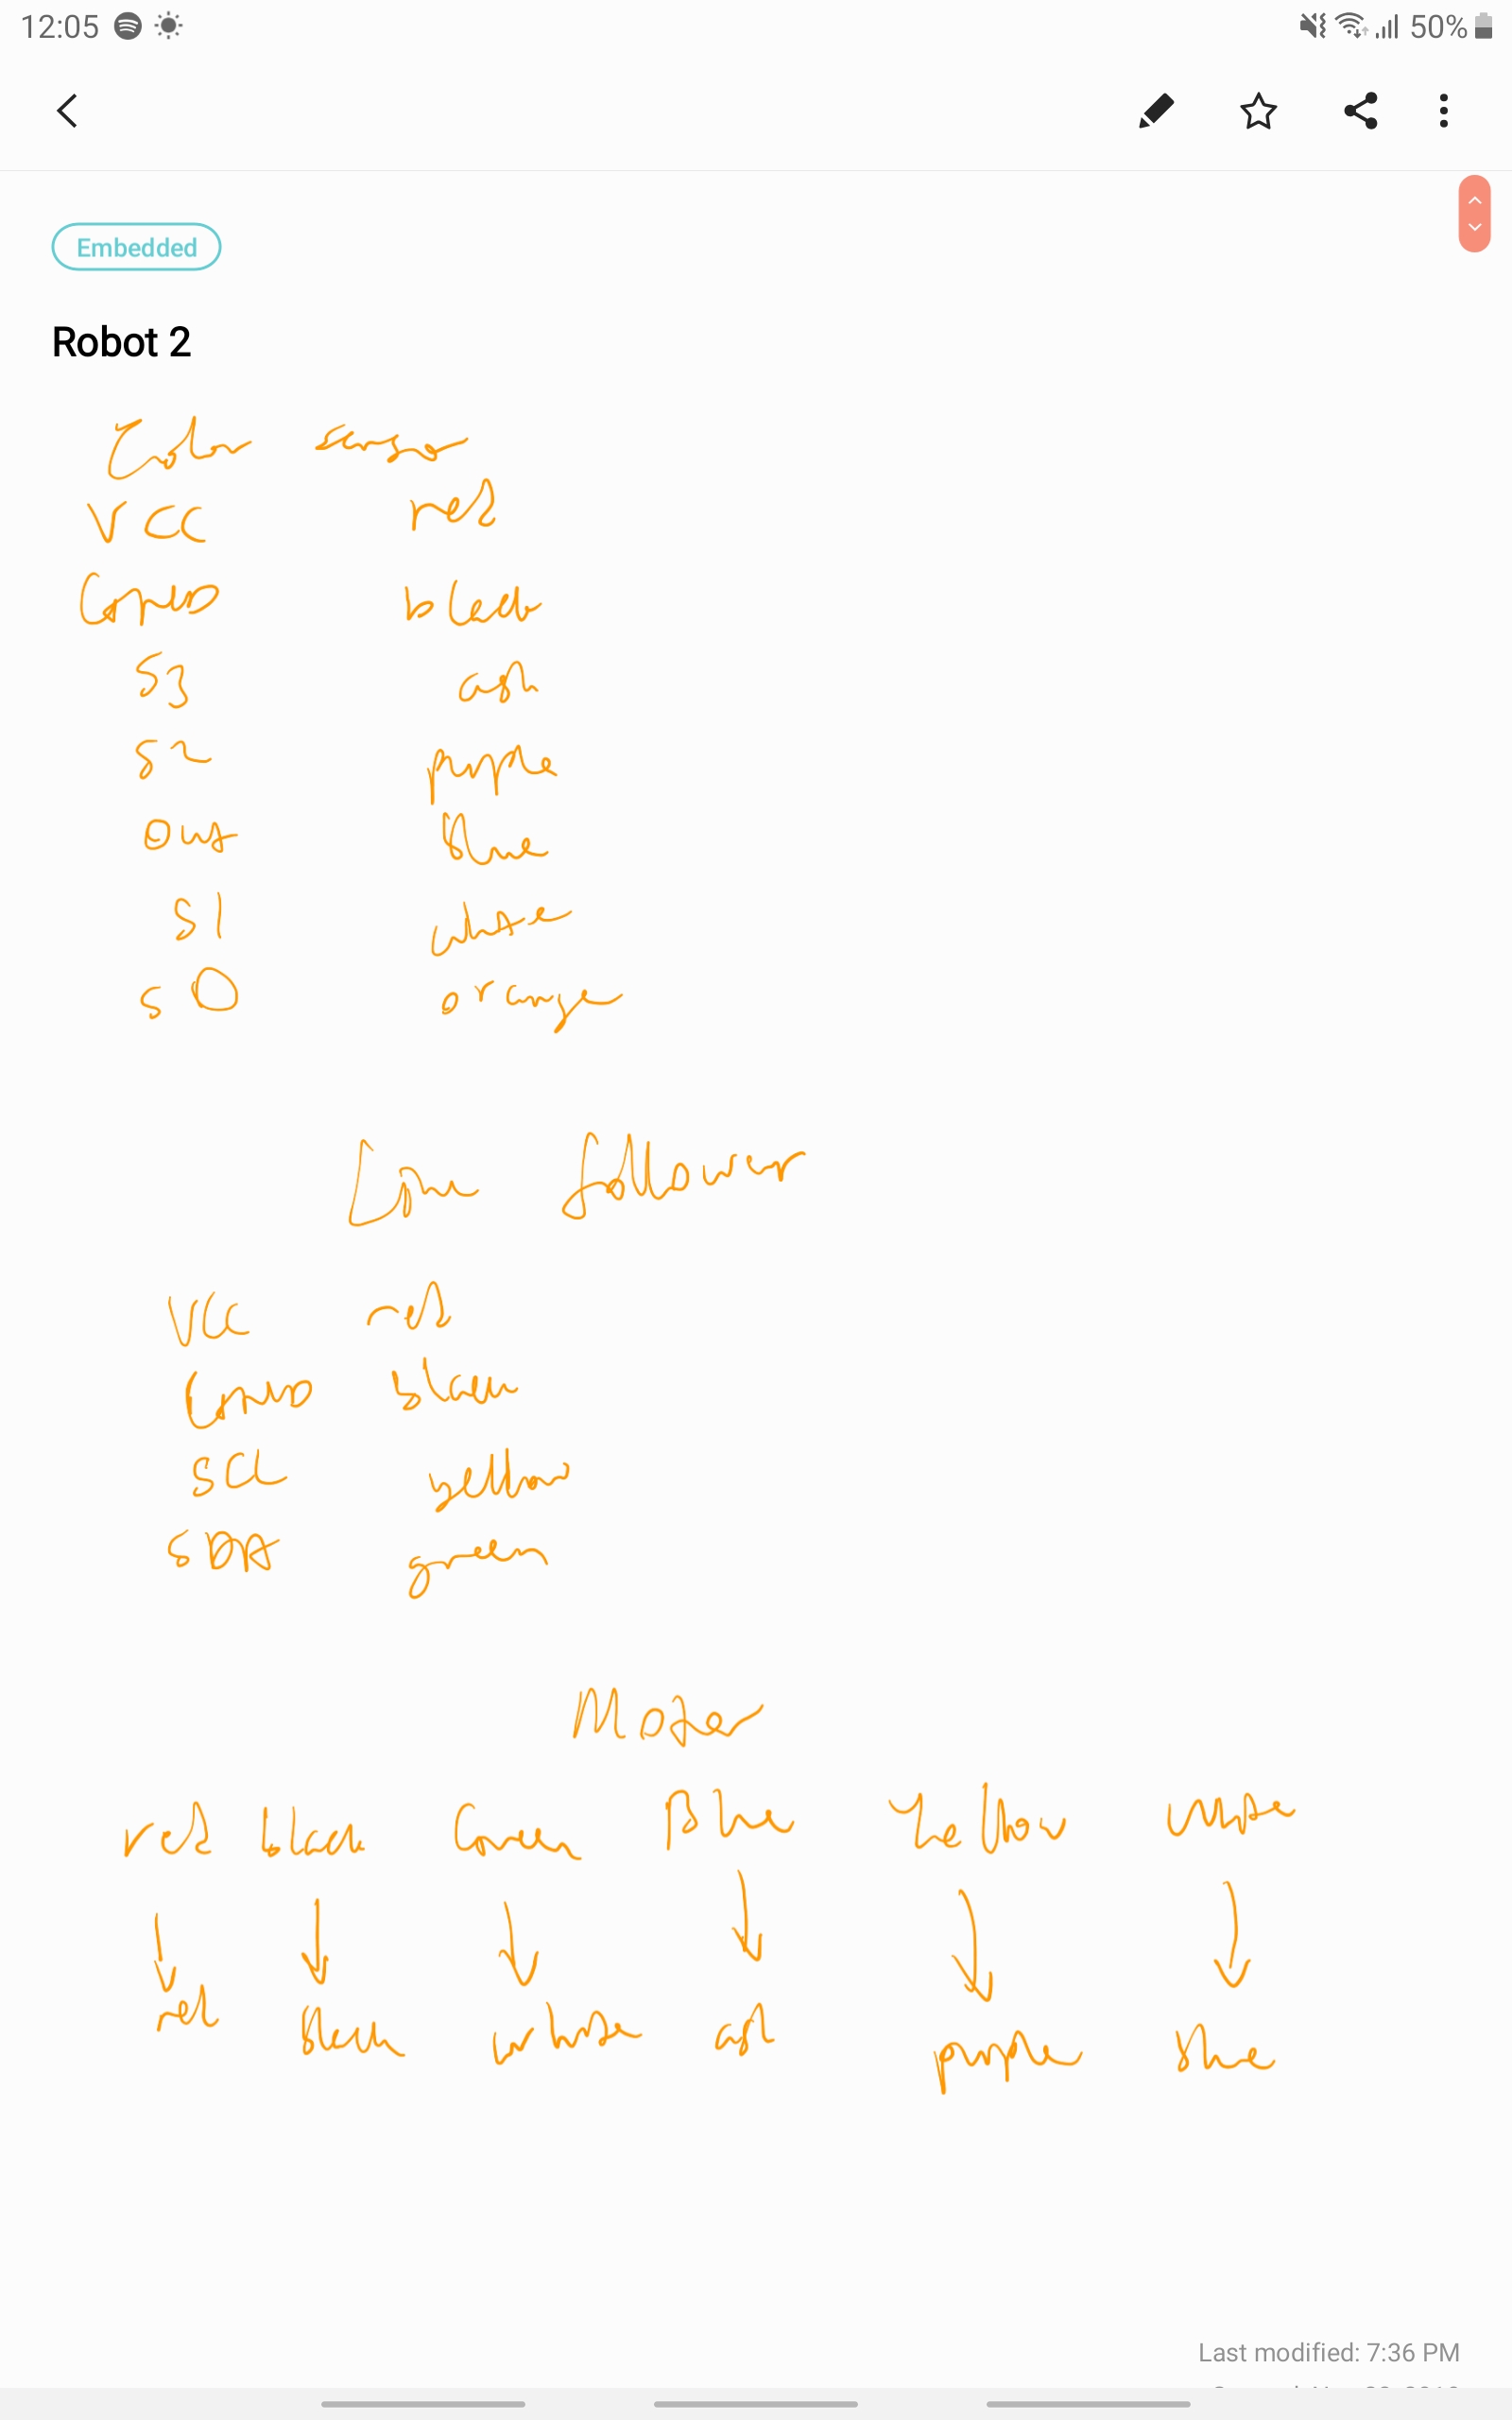 12:05 50%
Embedded
Robot 2
Color sensor
VCC red
GND black
S3 ash
S2 purple
out blue
S1 white
S0 orange
Line follower
VCC red
GND black
SCL yellow
SDA green
Motor
red black Green Blue Yellow white
red black white ash purple blue
Last modified: 7:36 PM